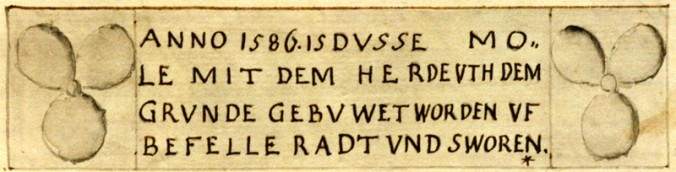 ANNO 1586. IS DVSSE MO„
LE MIT DEM HERDE VTH DEM
GRVNDE GEBVWET WORDEN VF
BEFELLE RADT VND SWOREN.
*